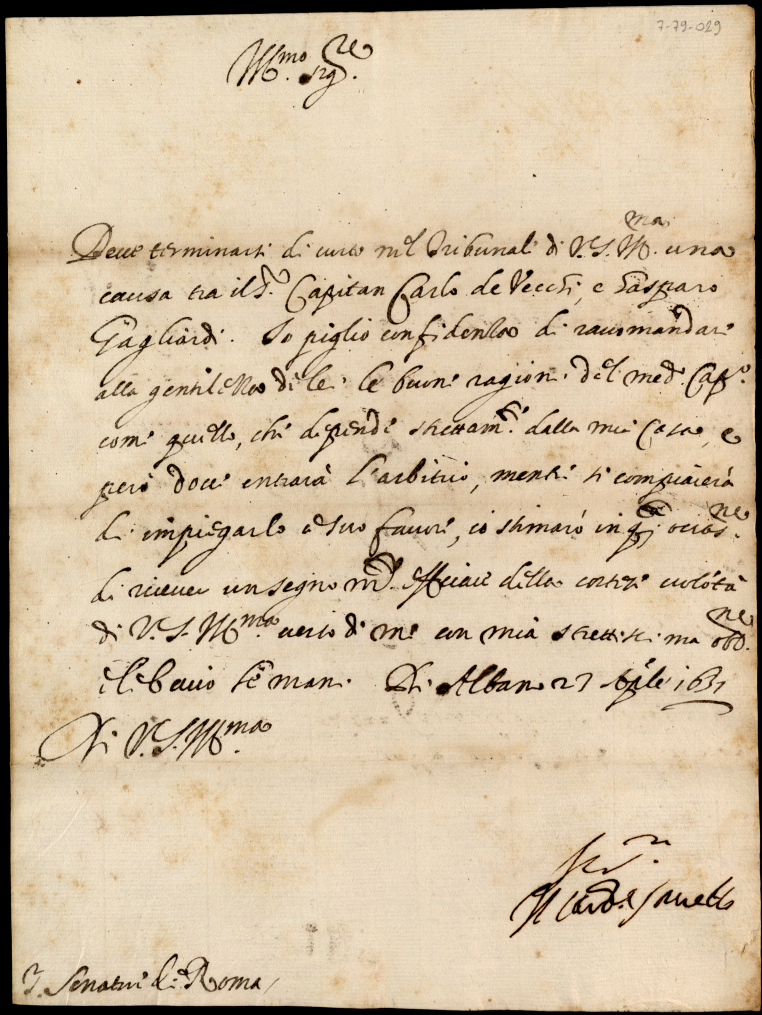 7-79-029
Ill.mo Sig.re
Deve terminarsi di curto nel Tribunale di V.S. Ill.ma una
causa tra il S.r Capitan Carlo de Vecchi, e Gasparo
Gagliardi. Io piglio confidenza di racomandare
alla gentilezza di lei le buone ragioni del med.o Cap.o
come quello, che depende strettam.te dalla mia Casa, e
però dove entrarà l'arbitrio, mentre si compiacerà
di impiegarlo a suo favore, io stimarò in q.sta occas.ne
di ricever un segno efficace della cortese volótà
di V.S. Ill.ma verso di me con mia strettissima obb.ne
e le bacio le mani. Di Albano 27 Aple 1631
Di V.S. Ill.ma
Ser.r
Il Card.e Savelli
S. Senatore di Roma